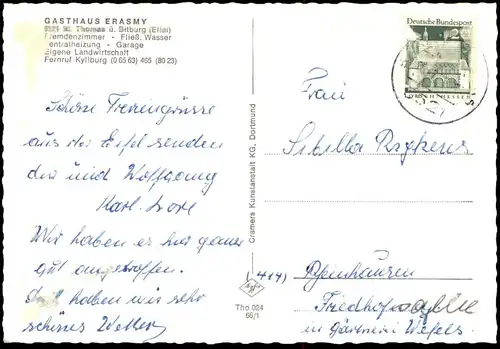 GASTHAUS ERASMY
5521 St. Thomas ü. Bitburg (Eifel)
Fremdenzimmer - Fließ. Wasser
Zentralheizung - Garage
Eigene Landwirtschaft
Fernruf Kyllburg (0 65 63) 465 (80 23)
Deutsche Bundespost
Schöne Feriengrüsse
aus der Eifel senden
dir und Wolfgang
Wir haben es hier ganz
gut angetroffen.
haben wir sehr
schönes Wetter
Cramers Kunstanstalt KG, Dortmund
Agfa
Tho 024
66/1
Frau
Sibilla
Friedhofsallee
in Gärtnerei